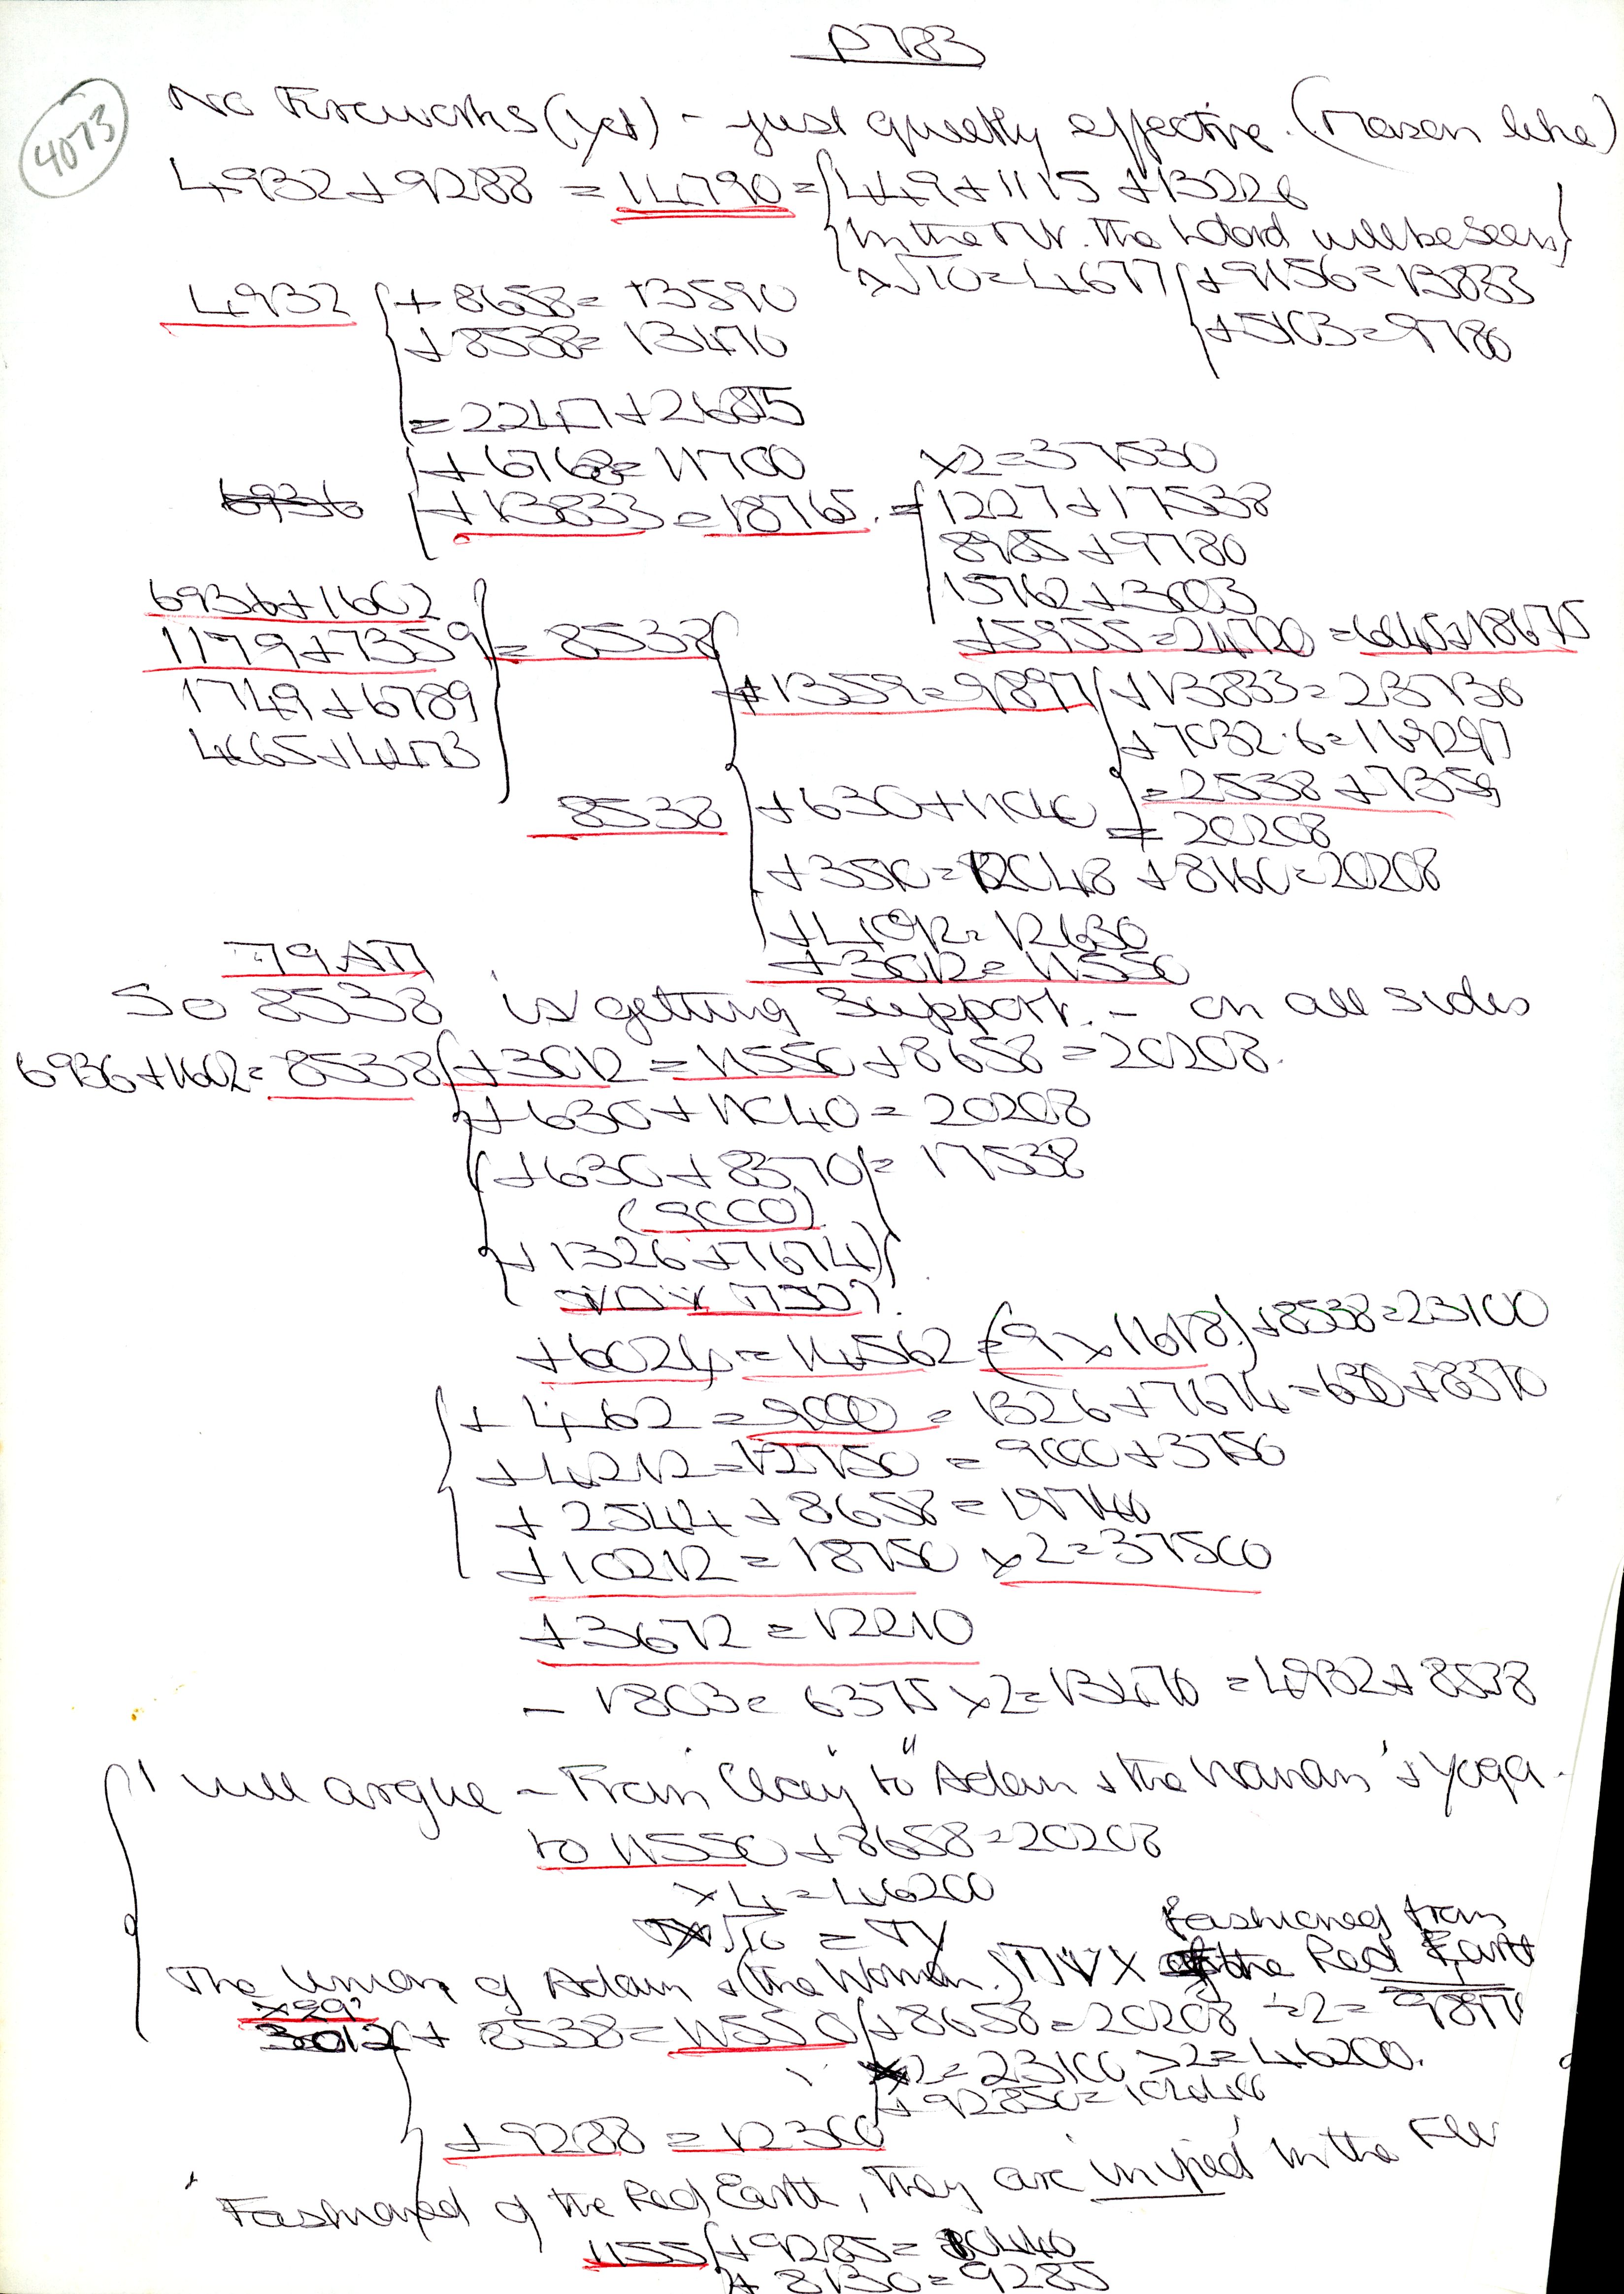 P783
4073
No Fireworks (yet) - just quietly effective. (Mason like)
4932 + 9288 = 14790 = {449 + 1115 + 13226
{In the N.W. the Word will be seen}
4932 { + 8658 = 13590
x √10 = 4677 { + 9156 = 13833
+ 8538 = 13470
+ 5103 = 9780
= 2247 + 2685
+ 6768 = 11700
x2 = 37530
6936 + 13833 = 18765. = {1227 + 17538
8985 + 9780
15762 + 3003
6936 + 1602
+ 5955 = 24720 = 6045 + 18675
1179 + 7359 } = 8538
1749 + 6789
+ 1359 = 9897 { + 13833 = 23730
4065 + 4473
+ 7032.6 = 169297
= 2538 + 7359
8538 { + 630 + 11040 } = 20208
+ 3510 = 12048 + 8160 = 20208
+ 4092 = 12630
+ 3012 = 11550
So 8538 is getting support. - on all sides
6936 + 1602 = 8538 { + 3012 = 11550 + 8658 = 20208.
+ 630 + 11040 = 20208
+ 630 + 8370 } = 17538
(9000)
+ 1326 + 7674 }
+ 6024 = 14562 = (9 x 1618.) + 8538 = 23100
+ 462 = 9000 = 1326 + 7674 = 630 + 8370
+ 4212 = 12750 = 9000 + 3750
+ 2544 + 8658 = 19740
+ 10212 = 18750 x2 = 37500
+ 3672 = 12210
- 1803 = 6375 x2 = 13470 = 4932 + 8538
I will argue - From Clay to "Adam & the Woman" & Yoga.
to 11550 + 8658 = 20208
x 4 = 46200
Fashioned from
The Union of Adam & (the Woman.) the Red Earth
x 29'
3012 + 8538 = 11550 { + 8658 = 20208 ÷ 2 = 9897
x2 = 23100 x2 = 46200.
+ 9285 =
+ 9288 = 12300
'Fashioned of the Red Earth, they are unified' in the
1155 { + 9285 = 10440
+ 8130 = 9285